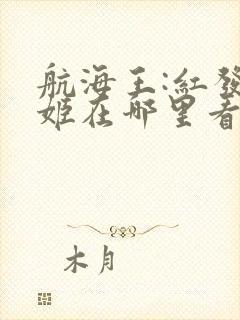 航海王:红發
姬在哪里看
木月